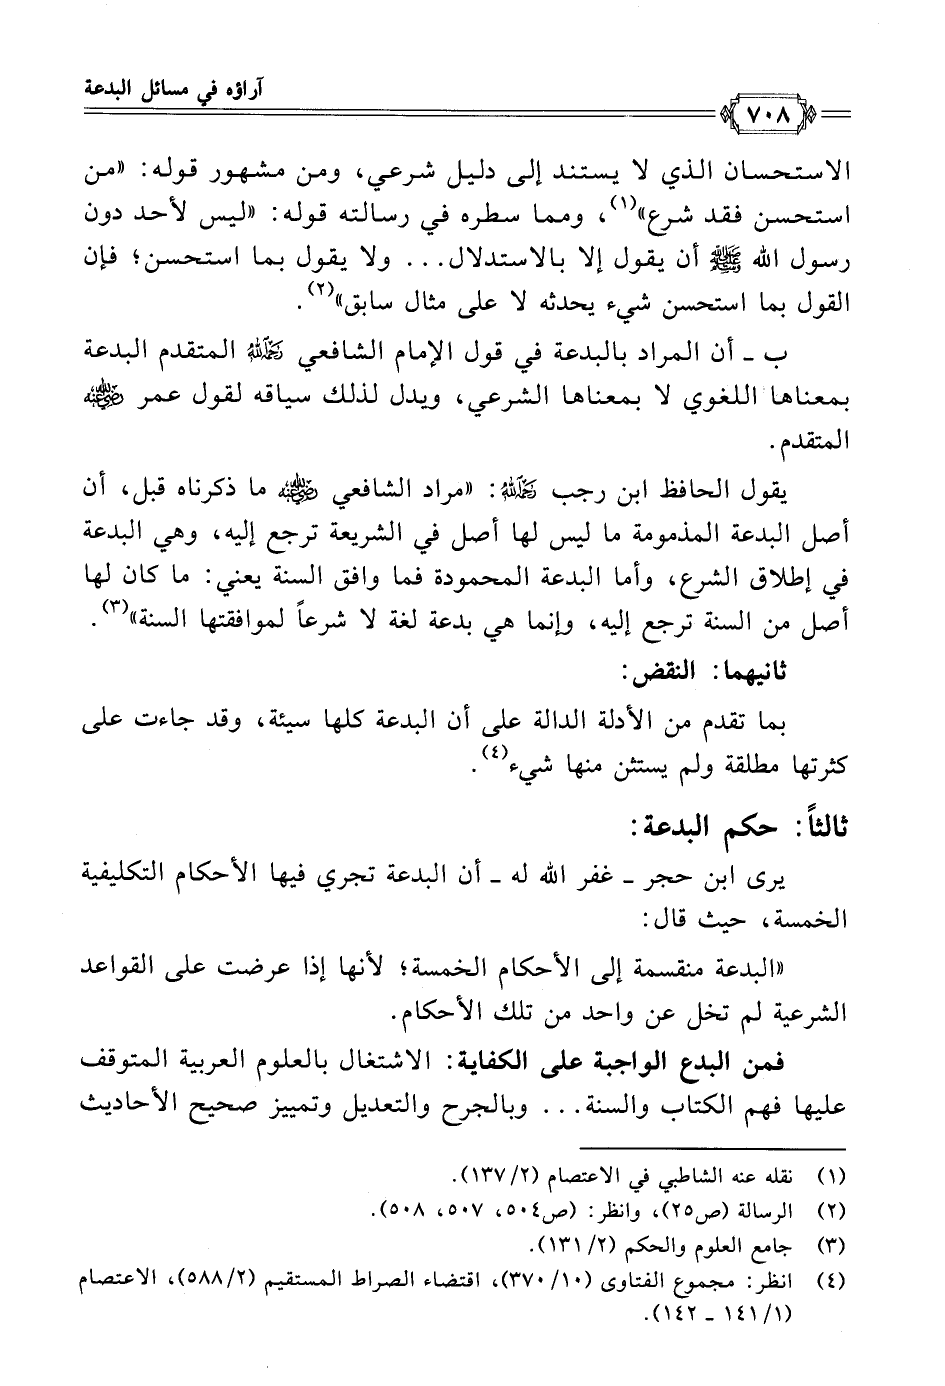 آراؤه في مسائل البدعة
٧٠٨
الاستحسان الذي لا يستند إلى دليل شرعي، ومن مشهور قوله: «من
استحسن فقد شرع»(١)، ومما سطره في رسالته قوله: «ليس لأحد دون
رسول الله ﷺ أن يقول إلا بالاستدلال... ولا يقول بما استحسن؛ فإن
القول بما استحسن شيء يحدثه لا على مثال سابق»(٢).
ب ـ أن المراد بالبدعة في قول الإمام الشافعي رحمه الله المتقدم البدعة
بمعناها اللغوي لا بمعناها الشرعي، ويدل لذلك سياقه لقول عمر رضي الله عنه
المتقدم.
يقول الحافظ ابن رجب رحمه الله: «مراد الشافعي رضي الله عنه ما ذكرناه قبل، أن
أصل البدعة المذمومة ما ليس لها أصل في الشريعة ترجع إليه، وهي البدعة
في إطلاق الشرع، وأما البدعة المحمودة فما وافق السنة يعني: ما كان لها
أصل من السنة ترجع إليه، وإنما هي بدعة لغة لا شرعاً لموافقتها السنة»(٣).
ثانيهما: النقض:
بما تقدم من الأدلة الدالة على أن البدعة كلها سيئة، وقد جاءت على
كثرتها مطلقة ولم يستثن منها شيء(٤).
ثالثاً: حكم البدعة:
يرى ابن حجر ـ غفر الله له ـ أن البدعة تجري فيها الأحكام التكليفية
الخمسة، حيث قال:
«البدعة منقسمة إلى الأحكام الخمسة؛ لأنها إذا عرضت على القواعد
الشرعية لم تخل عن واحد من تلك الأحكام.
فمن البدع الواجبة على الكفاية: الاشتغال بالعلوم العربية المتوقف
عليها فهم الكتاب والسنة... وبالجرح والتعديل وتمييز صحيح الأحاديث
(١) نقله عنه الشاطبي في الاعتصام (١٣٧/٢).
(٢) الرسالة (ص٢٥)، وانظر: (ص٥٠٤، ٥٠٧، ٥٠٨).
(٣) جامع العلوم والحكم (١٣١/٢).
(٤) انظر: مجموع الفتاوى (٣٧٠/١٠)، اقتضاء الصراط المستقيم (٥٨٨/٢)، الاعتصام
(١٤١/١ ـ ١٤٢).